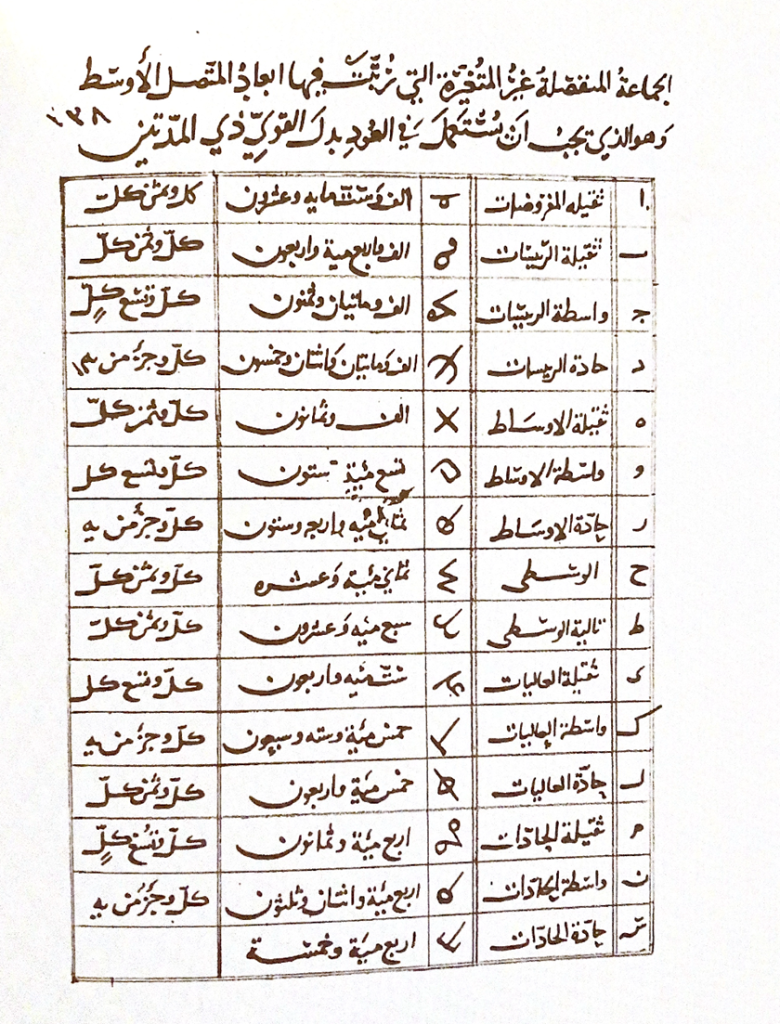 الجماعةُ المنفصلةُ غيرُ المتغيّرة التي رُتّبَتْ فيها ابعادُ المتّصل الأوسط
وَهو الذي يجبُ انْ يُستَعمَل في العُودِ بدل القويِّ ذي المدّتين
ا ثقيله المفروضات الف وستّ مايه وعشرون كل وثمن كلّ
ب ثقيلة الرئيسات الف واربع مية واربعون كلّ وثمن كلّ
ج واسطة الرئيسات الف وماتيان وثمنون كلّ وتسع كلٍّ
د حادة الريسات الف وماتيان واثنان وخمسون كلّ وجزء من
ه ثقيلة الاوساط الف وثمانون كلّ وثمن كلّ
و واسطة الاوساط تسع مئيةٍ ستون كلّ وتسع كل
ر حادّة الاوساط ثماني ميّه واربعه وستون كلّ وجزء من يه
ح الوسطى ثماني مئية وعشره كلّ وثمن كلّ
ط تالية الوسطى سبع ميّه وعشرون كلّ وثمن كلّ
ى ثقيلة العاليات ستّ مئيه واربعون كلّ وتسع كل
ک واسطة العاليات خمس ميّة وسته وسبعون كلّ وجزء من يه
ل حادّة العاليات خمس ميّة واربعون كلّ وثمن كلّ
م ثقيلة الحادّات اربع ميّة وثمانون كلّ وتسع كلٍّ
ن واسطة الحادّات اربع ميّة واثنتان وثلثون كلّ وجزء من يه
س حادّة الحادّات اربع ميّة وخمسة